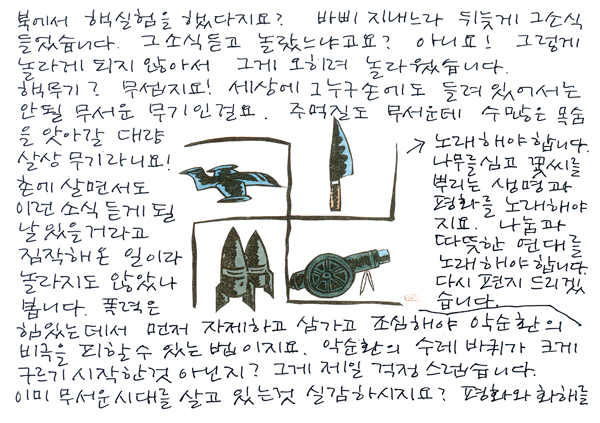 북에서 핵실험을 했다지요? 바삐 지내느라 뒤늦게 그소식
들었습니다. 그소식듣고 놀랐느냐고요? 아니요! 그렇게
놀라게 되지 않아서 그게 오히려 놀라웠습니다.
핵무기? 무섭지요! 세상에 그누구손에도 들려 있어서는
안될 무서운 무기인걸요. 주먹질도 무서운데 수많은 목숨
을 앗아갈 대량
살상 무기라니요!
촌에 살면서도
이런 소식 듣게 될
날 있을 거라고
짐작해온 일이라
놀라지도 않았나
봅니다. 폭력은
힘있는데서 먼저 자제하고 삼가고 조심해야 악순환의
비극을 피할 수 있는 법이지요. 악순환의 수레 바퀴가 크게
구르기 시작한것 아닌지? 그게 제일 걱정 스럽습니다.
이미 무서운시대를 살고 있는것 실감하시지요? 평화와 화해를
→ 노래해야 합니다.
나무를 심고 꽃씨를
뿌리는 생명과
평화를 노래해야
지요. 나눔과
따뜻한 연대를
노래해야 합니다.
다시 편지 드리겠
습니다.